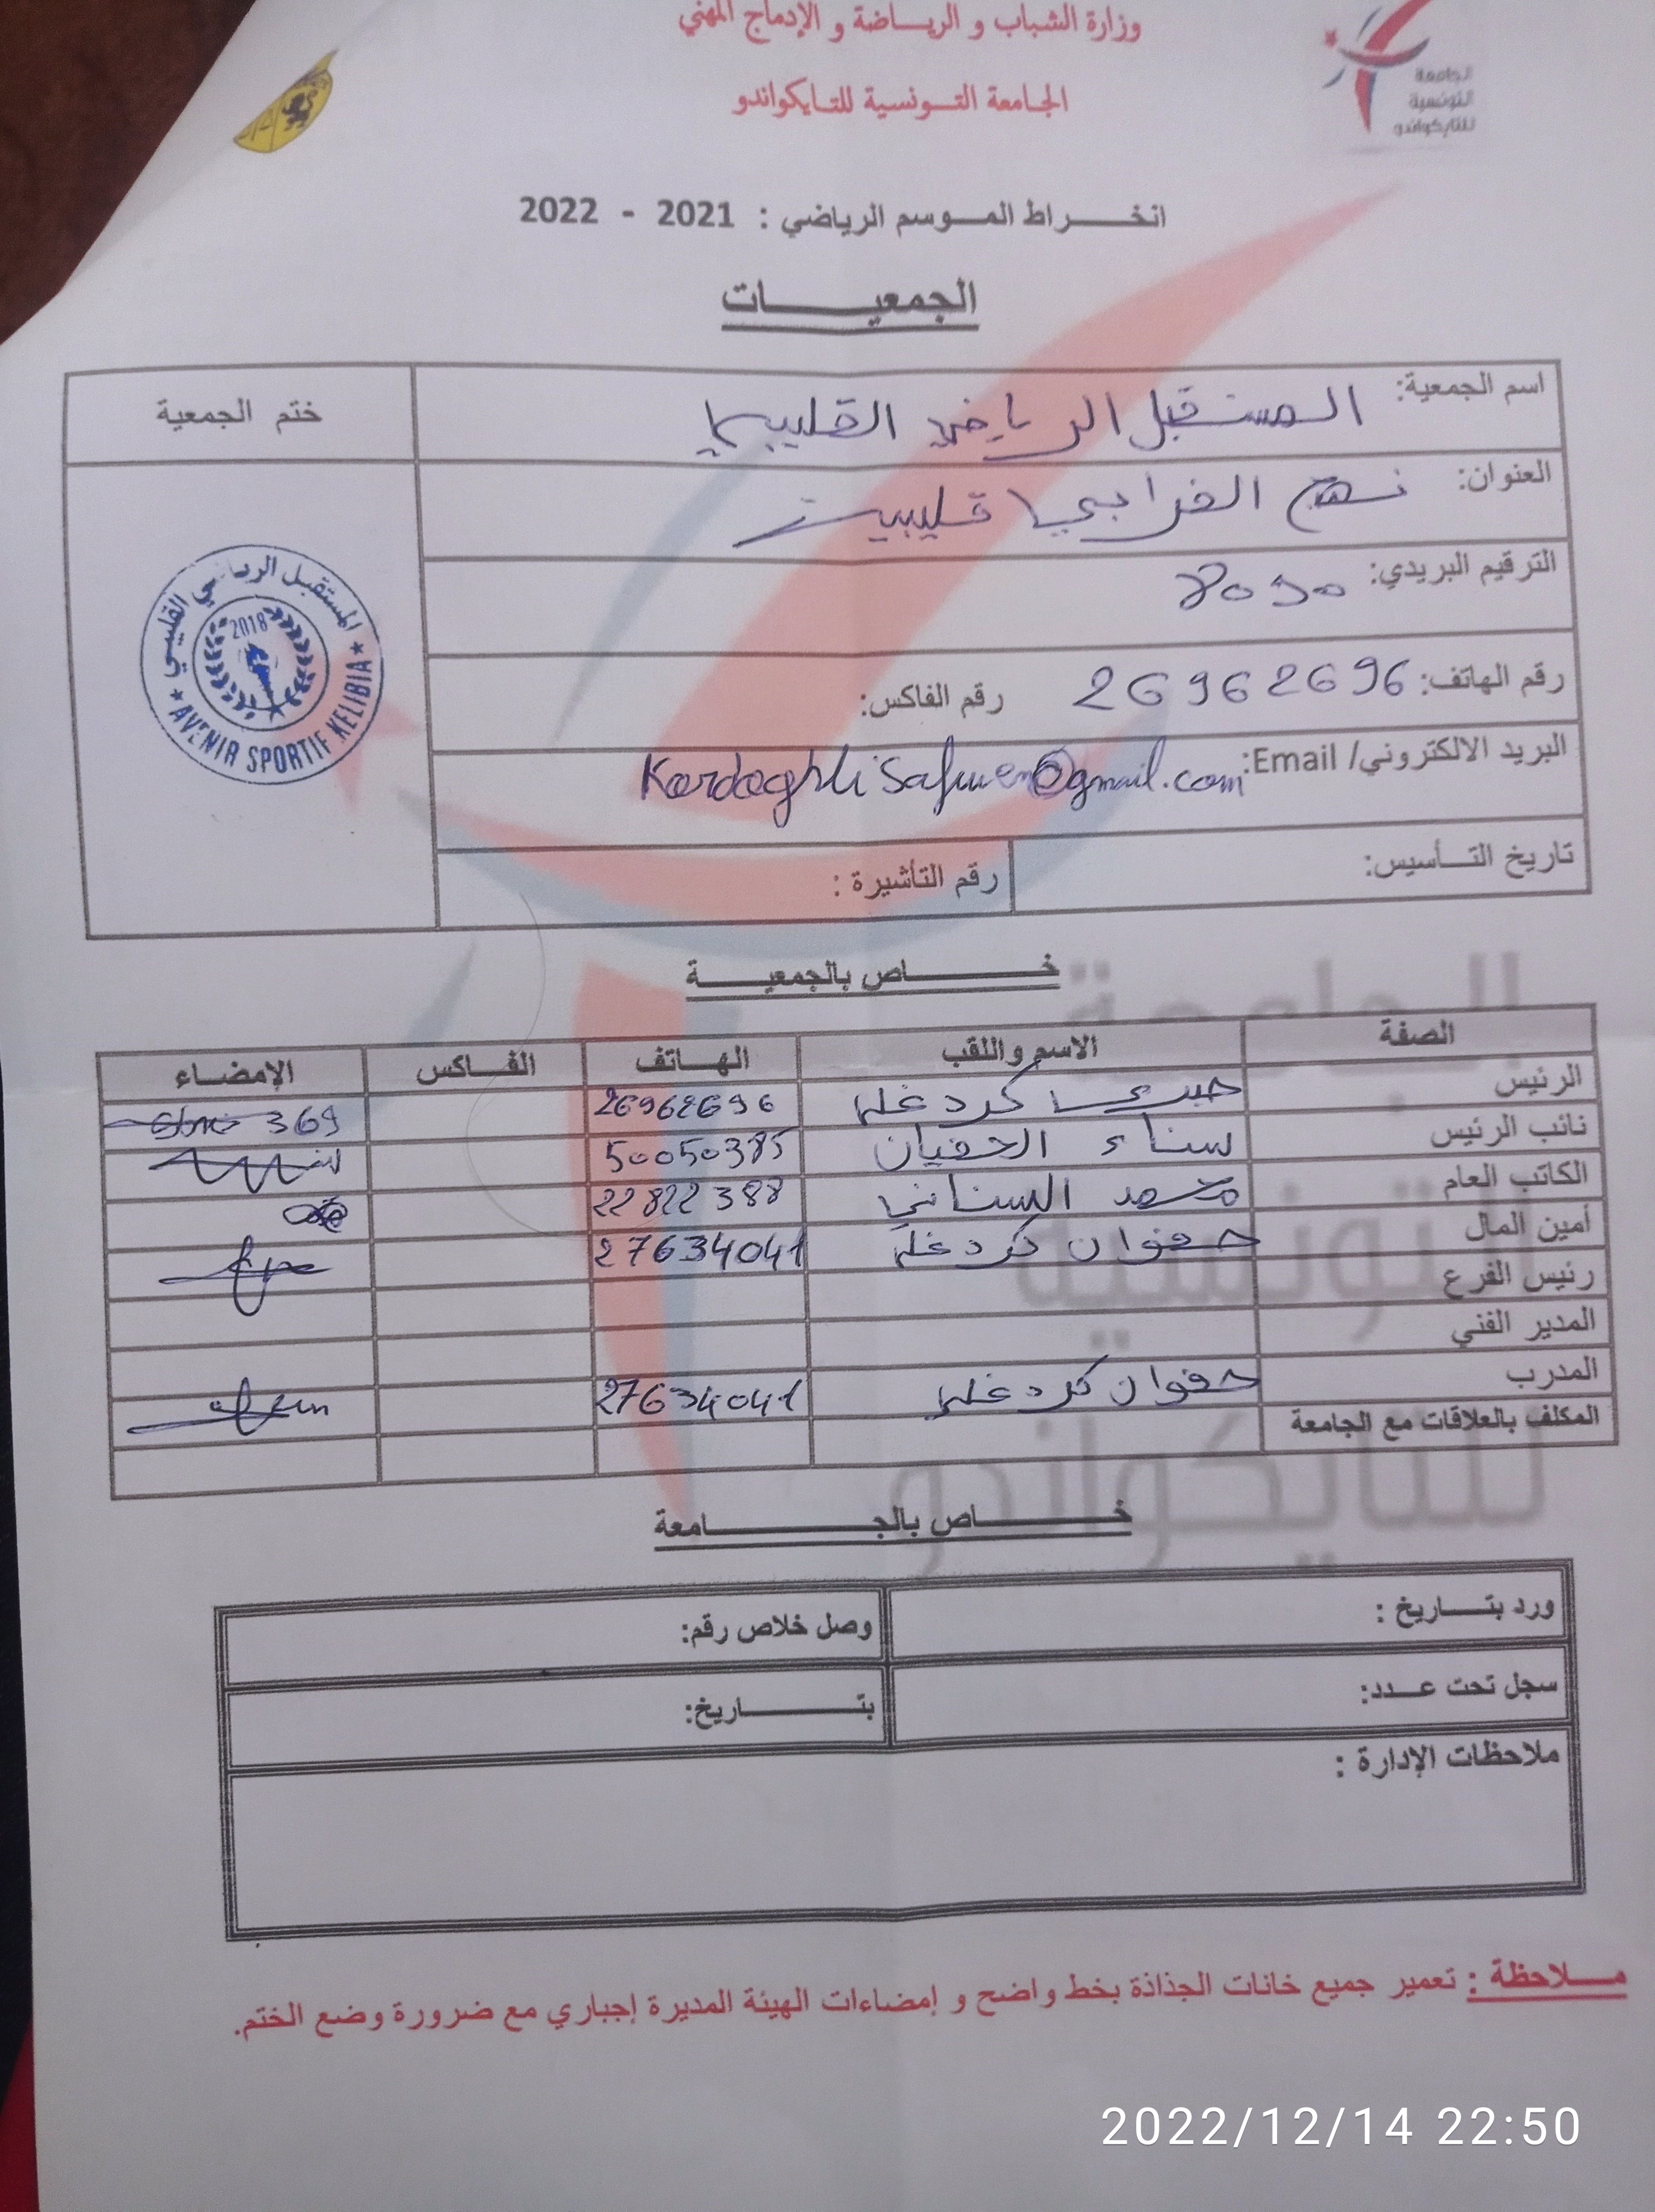 وزارة الشباب و الرياضة و الإدماج المهني
الجامعة التونسية للتايكواندو
الجامعة
التونسية
للتايكواندو
انخراط الموسم الرياضي : 2021 - 2022
الجمعيات
اسم الجمعية: المستقبل الرياضي القليبي
ختم الجمعية
العنوان: نهج الفرابي قليبية
الترقيم البريدي: 8090
رقم الهاتف: 26962696 رقم الفاكس:
البريد الالكتروني/ Email: KardaghliSafwen@gmail.com
تاريخ التأسيس: رقم التأشيرة :
المستقبل الرياضي القليبي
2018
AVENIR SPORTIF KELIBIA
خاص بالجمعية
الصفة الاسم واللقب الهاتف الفاكس الإمضاء
الرئيس صبري كردغلي 26962696
نائب الرئيس سناء 50050385
الكاتب العام محمد السناني 22822388
أمين المال صفوان كردغلي 27634041
رئيس الفرع
المدير الفني
المدرب صفوان كردغلي 27634041
المكلف بالعلاقات مع الجامعة
خاص بالجامعة
ورد بتاريخ : وصل خلاص رقم:
سجل تحت عدد: بتاريخ:
ملاحظات الإدارة :
ملاحظة : تعمير جميع خانات الجذاذة بخط واضح و إمضاءات الهيئة المديرة إجباري مع ضرورة وضع الختم.
2022/12/14 22:50